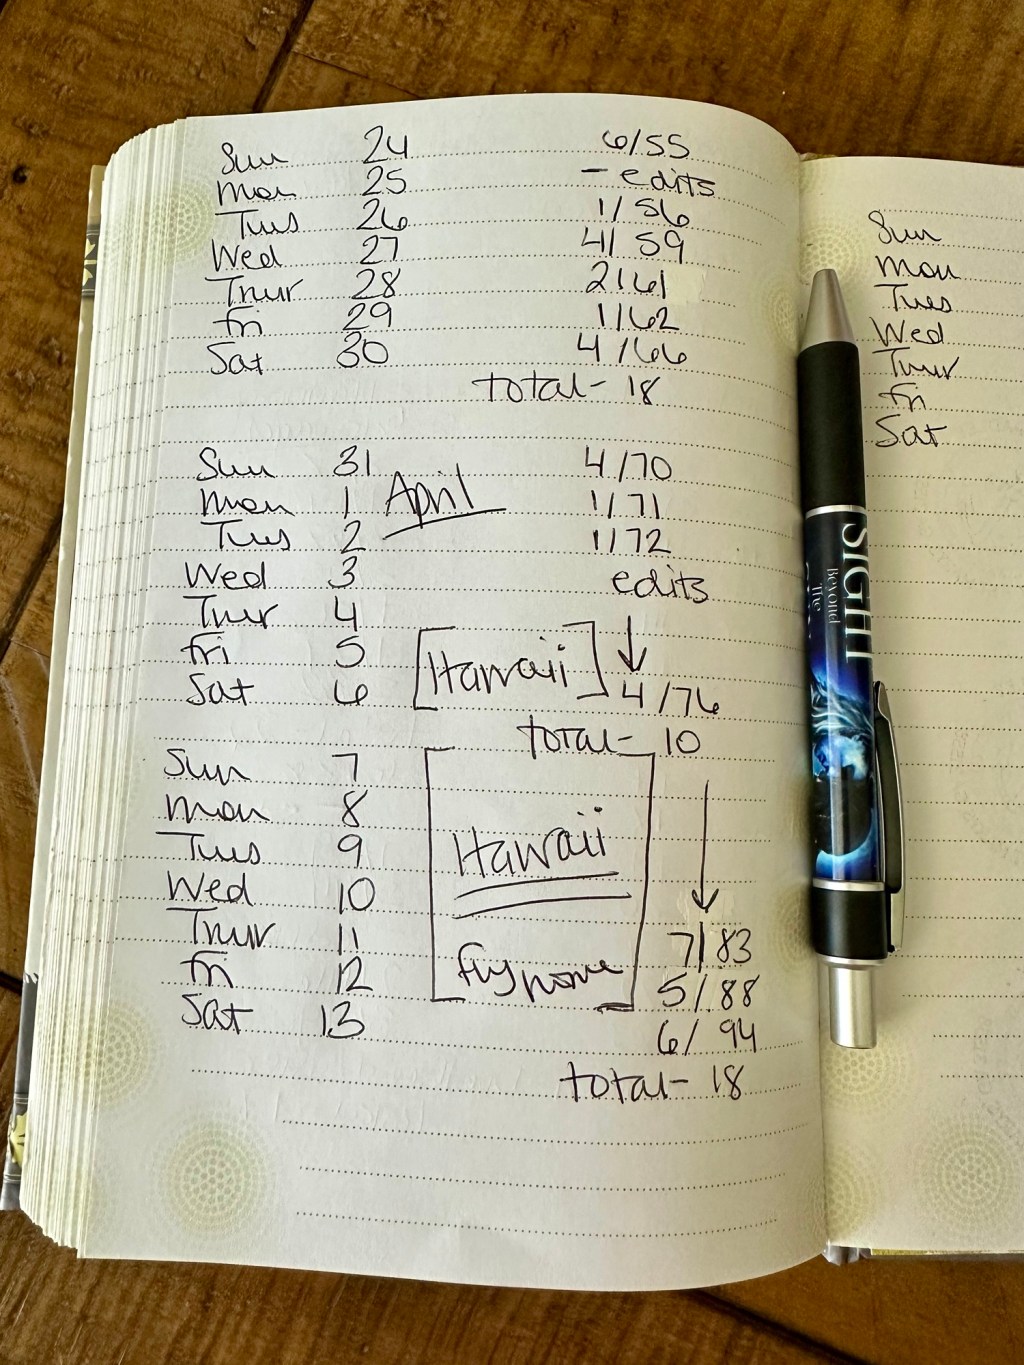 Sun 24 6/55
Mon 25 - edits
Tues 26 1/56
Wed 27 4/59
Thur 28 2/61
Fri 29 1/62
Sat 30 4/66
total- 18
Sun 31 4/70
Mon 1 April 1/71
Tues 2 1/72
Wed 3 edits
Thur 4
Fri 5 [Hawaii] ↓
Sat 6 4/76
total- 10
Sun 7
Mon 8
Tues 9 Hawaii
Wed 10
Thur 11 7/83
Fri 12 fly home 5/88
Sat 13 6/94
total- 18
Sun
Mon
Tues
Wed
Thur
Fri
Sat
SIGHT
Beyond
The